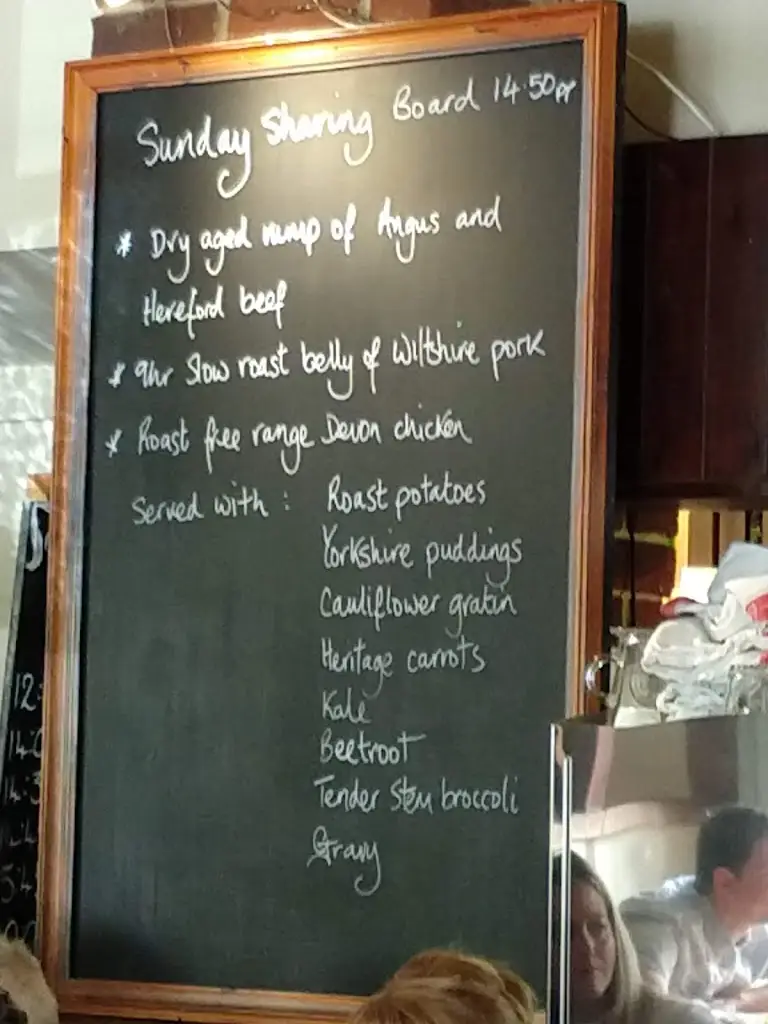 Sunday Sharing Board 14.50pp
* Dry aged rump of Angus and
Hereford beef
* 9hr Slow roast belly of Wiltshire pork
* Roast free range Devon chicken
Served with : Roast potatoes
Yorkshire puddings
Cauliflower gratin
Heritage carrots
Kale
Beetroot
Tender Stem broccoli
Gravy